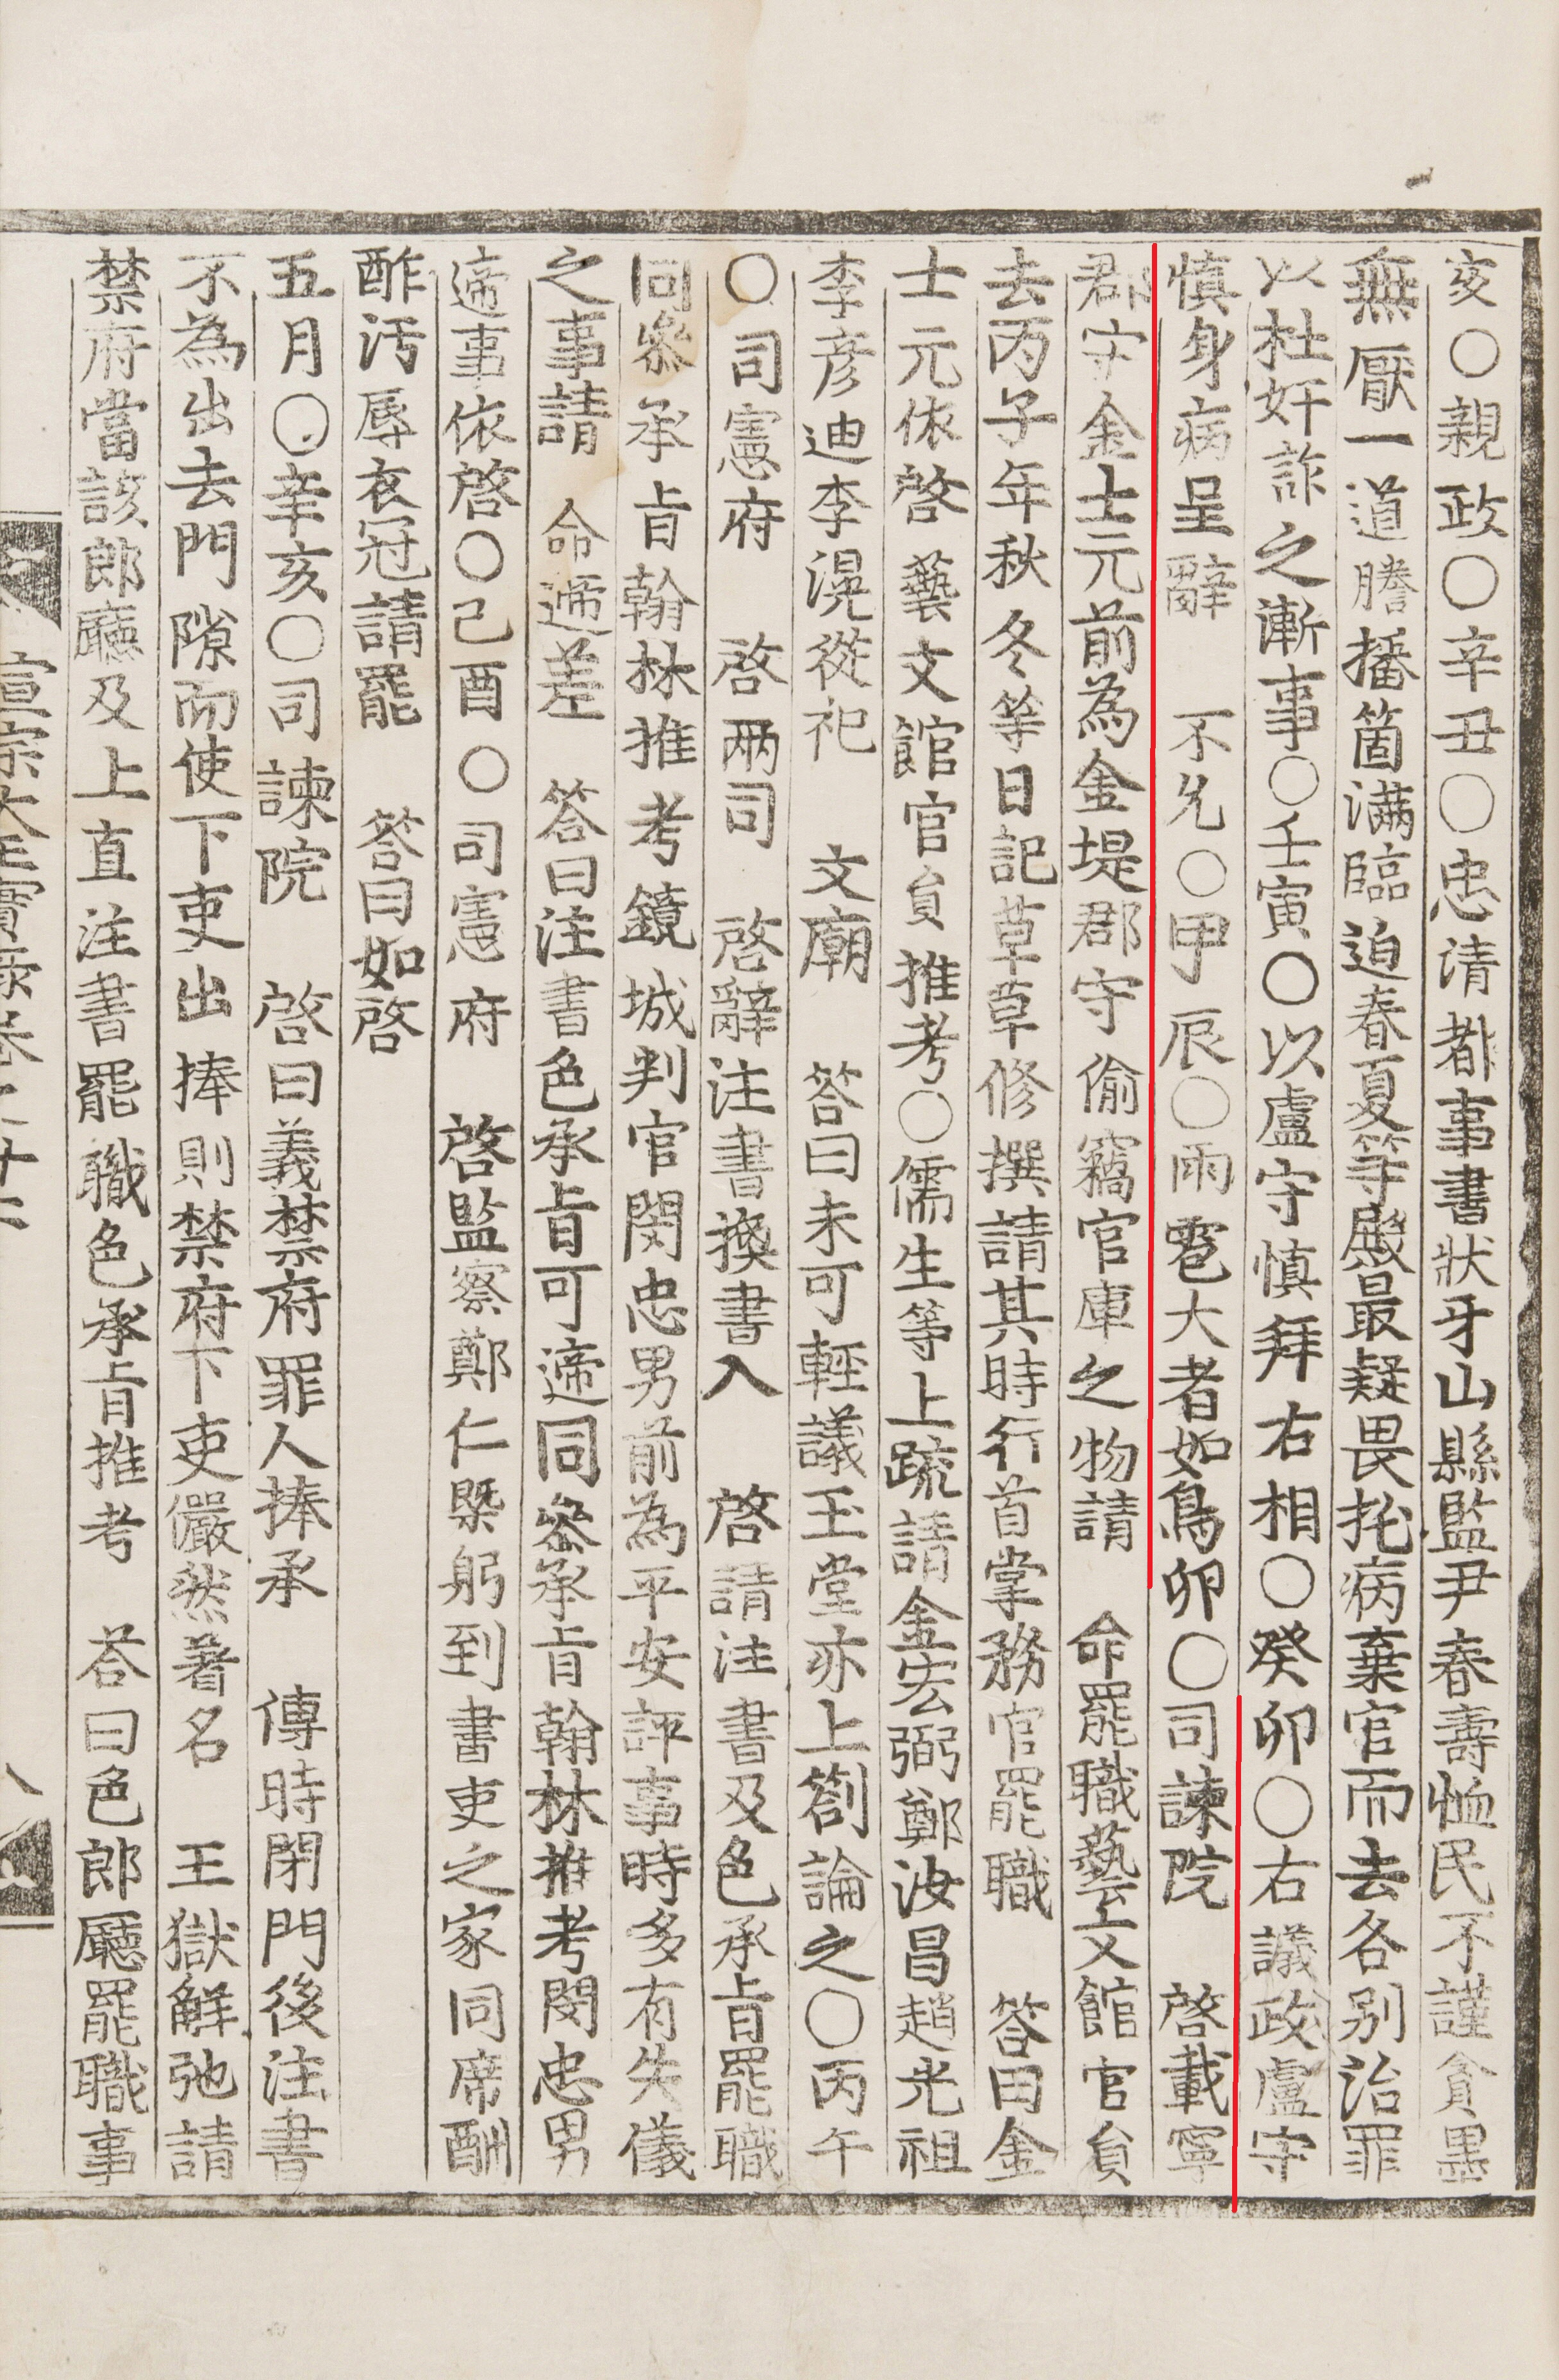 亥○親政○辛丑○忠清都事書狀牙山縣監尹春壽恤民不謹貪墨
無厭一道謄播箇滿臨迫春夏等殿最疑畏托病棄官而去各別治罪
以杜奸詐之漸事○壬寅○以盧守愼拜右相○癸卯○右議政盧守
愼身病呈辭 不允○甲辰○雨雹大者如鳥卵○司諫院 啓載寧
郡守金士元前為金堤郡守偷竊官庫之物請 命罷職藝文館官員
去丙子年秋冬等日記草草修撰請其時行首掌務官罷職 答曰金
士元依啓藝文館官員推考○儒生等上疏請金宏弼鄭汝昌趙光祖
李彥迪李滉從祀 文廟 答曰未可輕議玉堂亦上箚論之○丙午
○司憲府 啓兩司 啓辭注書換書入 啓請注書及色承旨罷職
同參承旨翰林推考鏡城判官閔忠男前為平安評事時多有失儀
之事請 命遞差 答曰注書色承旨可遞同參承旨翰林推考閔忠男
遞事依啓○己酉○司憲府 啓監察鄭仁槩躬到書吏之家同席酬
酢汚辱衣冠請罷 答曰如啓
五月○辛亥○司諫院 啓曰義禁府罪人捧承 傳時閉門後注書
不為出去門隙而使下吏出捧則禁府下吏儼然着名 王獄解弛請
禁府當該郎廳及上直注書罷職色承旨推考 答曰色郎廳罷職事
宣宗大王實錄卷之十二 八